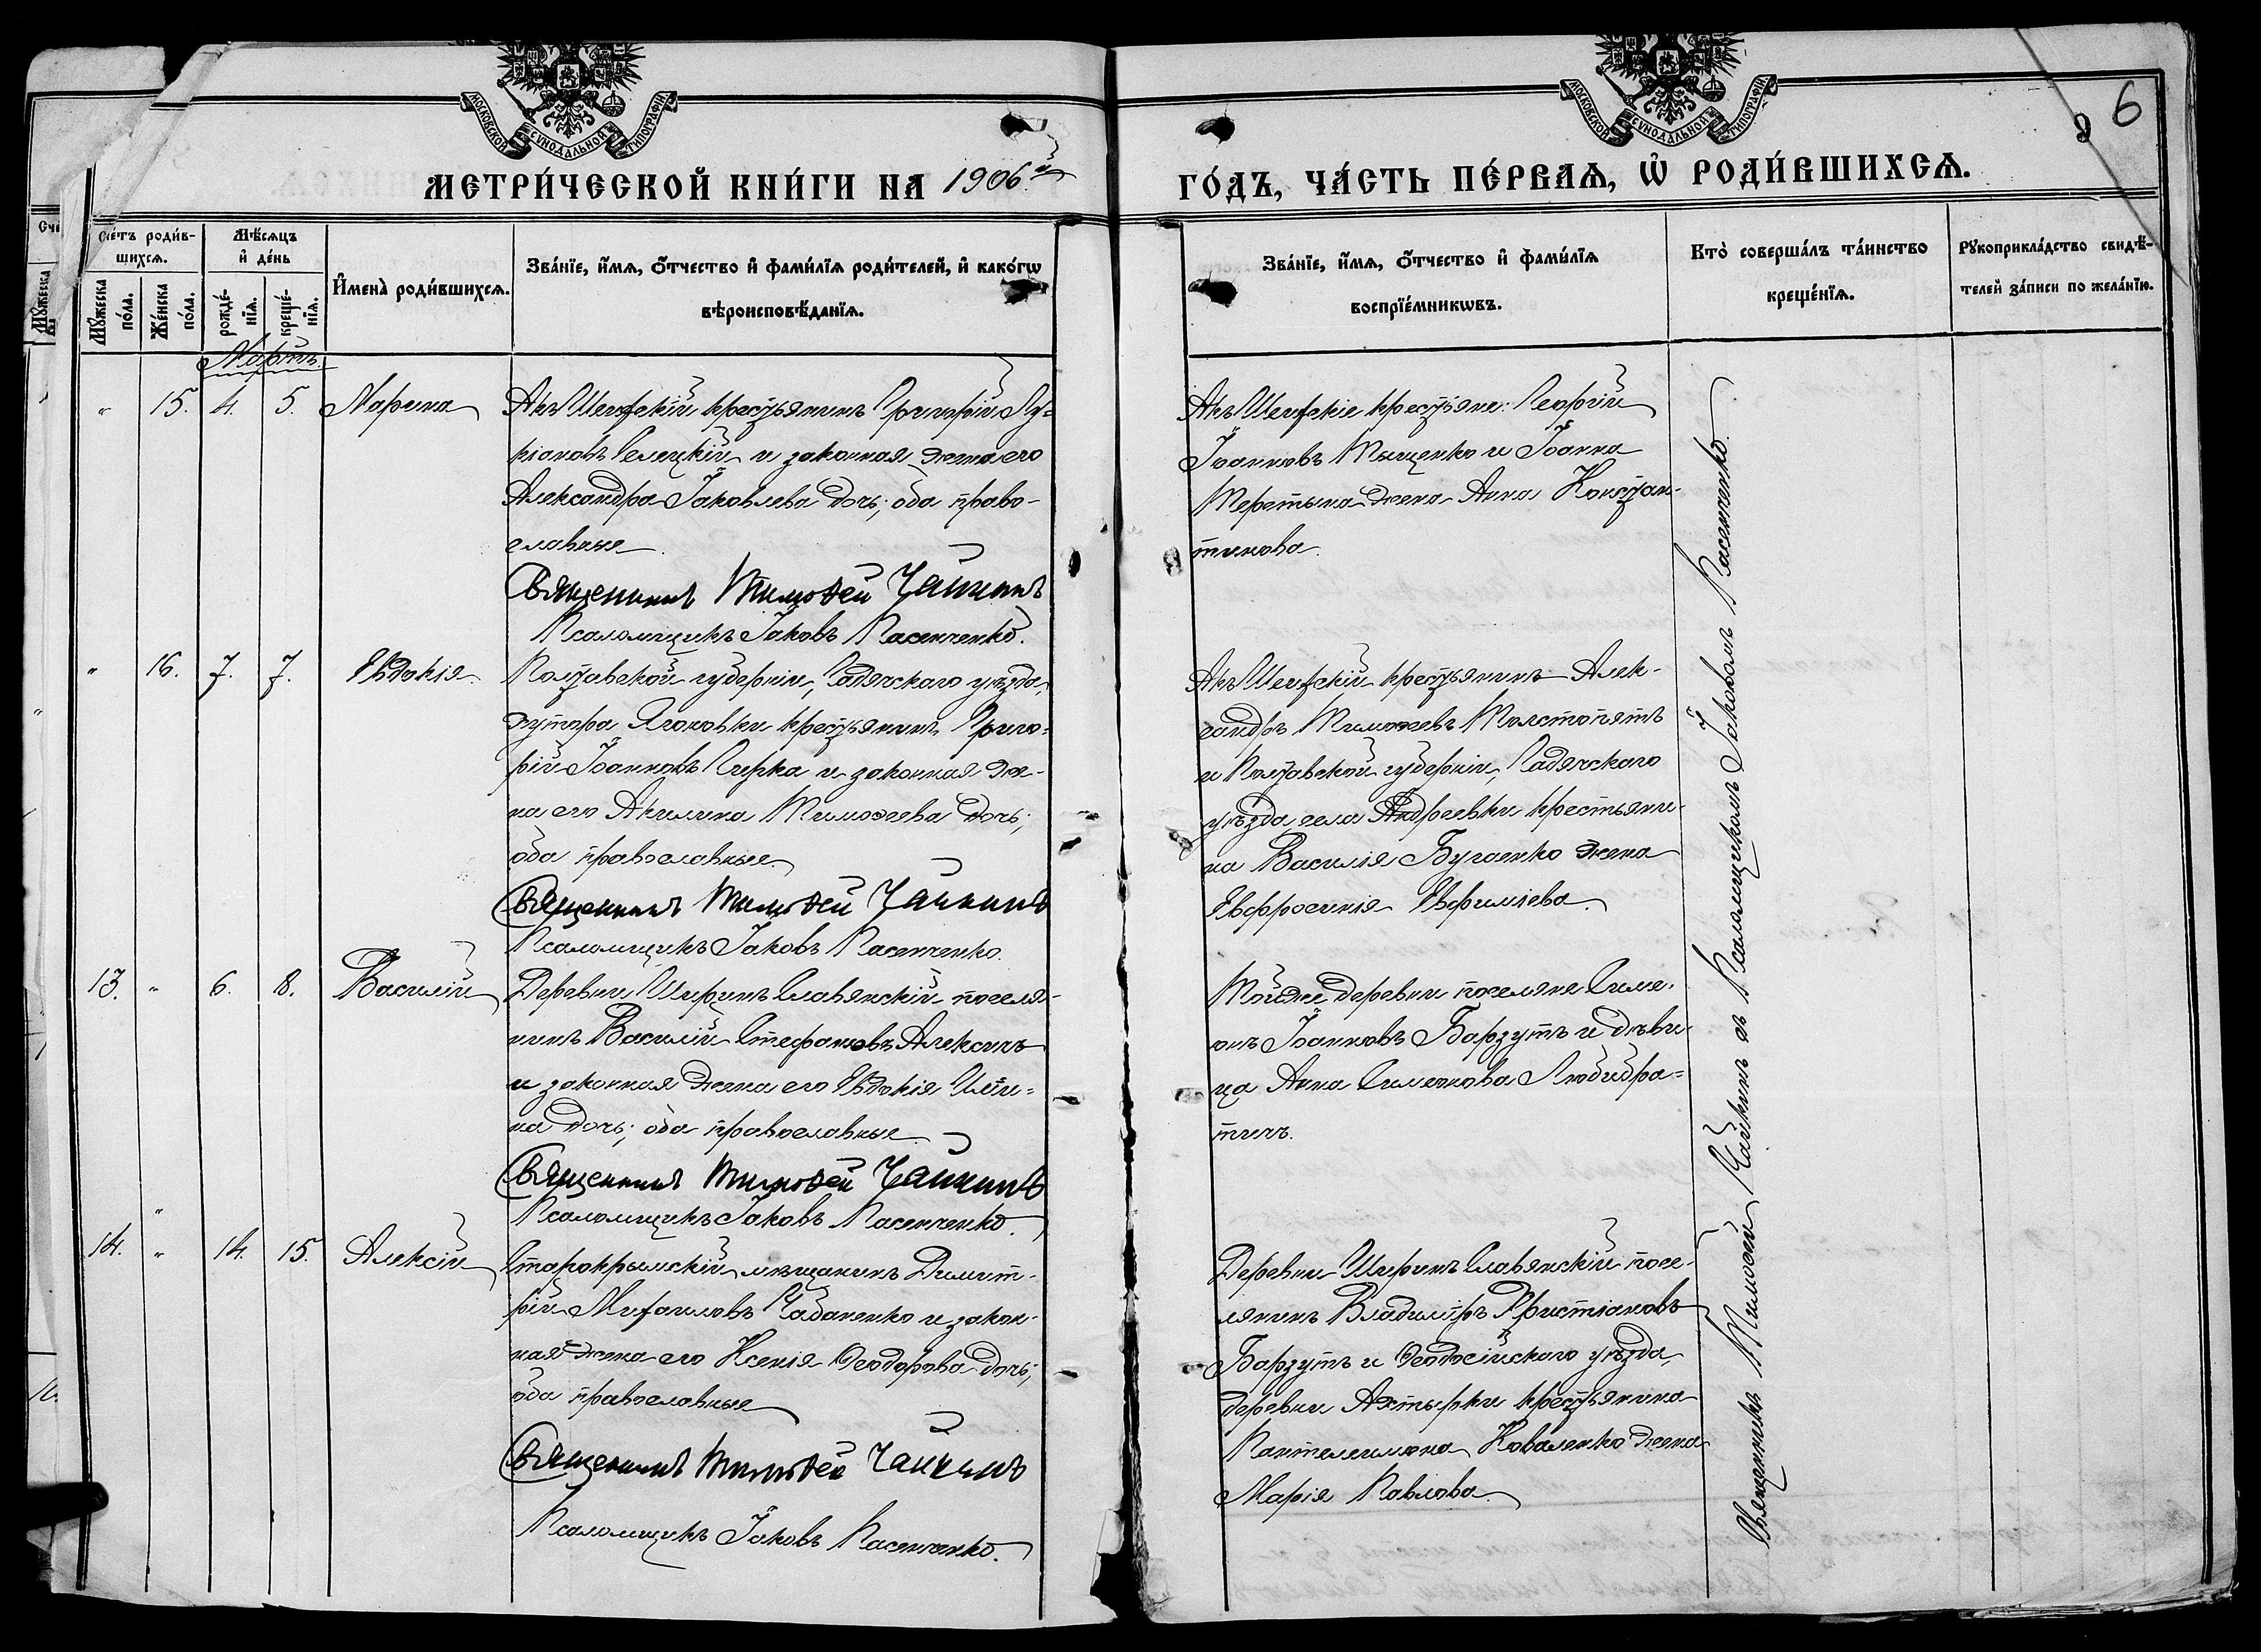 МОСКОВСКОЙ СУНОДАЛЬНОЙ ТИПОГРАФІИ
МОСКОВСКОЙ СУНОДАЛЬНОЙ ТИПОГРАФІИ
6
МЕТРИ́ЧЕСКОЙ КНИ́ГИ НА 1906й
ГО́ДЪ, ЧА́СТЬ ПЕ́РВАѦ, Ѡ҆ РОДИ́ВШИХСѦ.
Сче́тъ роди́в-
шихсѧ.
Мѣ́сѧцъ
и҆ де́нь
Му́жеска
по́ла.
Же́нска
по́ла.
рожде́-
нїѧ.
креще́-
нїѧ.
И҆мена̀ роди́вшихсѧ.
Зва́нїе, и҆́мѧ, ѻ҆́тчество и҆ фами́лїѧ роди́телей, и҆ како́гѡ
вѣроисповѣ́данїѧ.
Зва́нїе, и҆́мѧ, ѻ҆́тчество и҆ фами́лїѧ
воспрїе́мникѡвъ.
Кто̀ соверша́лъ та́инство
креще́нїѧ.
Рꙋкоприкла́дство свидѣ́-
телей за́писи по жела́нїю.
Мартъ.
" 15. 4. 5. Марина
Акъ Шеихскій крестьянинъ Григорій Лу=
кіановъ Селецкій и законная жена его
Александра Іаковлева дочь; оба право-
славные.
Священникъ Тимоѳей Чайкинъ
Псаломщикъ Іаковъ Пасенченко.
Акъ Шеихскіе крестьяне: Георгій
Іоанновъ Тыщенко и Іоанна
Теретына жена Анна Констан-
тинова.
" 16. 7. 7. Евдокія.
Полтавской губерніи, Гадячскаго уѣзда,
хутора Ячоновки крестьянинъ Григо-
рій Іоанновъ Сирка и законная же-
на его Акилина Тимоѳеева дочь;
оба православные.
Священникъ Тимоѳей Чайкинъ
Псаломщикъ Іаковъ Пасенченко.
Акъ Шеихскій крестьянинъ Алек-
сандръ Тимоѳеевъ Толстопятъ
и Полтавской губерніи, Гадячскаго
уѣзда, села Андреевки крестьяни-
на Василія Бугаенко жена
Евфросинія Евфиміева.
13. " 6. 8. Василій
Деревни Ширинъ Славянскій поселя-
нинъ Василій Стефановъ Алексичъ
и законная жена его Евдокія Иліи=
на дочь; оба православные.
Священникъ Тимоѳей Чайкинъ
Псаломщикъ Іаковъ Пасенченко.
Той-же деревни поселяне: Симе-
онъ Іоанновъ Барзутъ и дѣви-
ца Анна Симеонова Любидра=
тичъ.
14. " 14. 15. Алексій
Старокрымскій мѣщанинъ Димит-
рій Михаиловъ Чабаненко и закон-
ная жена его Ксенія Ѳеодорова дочь;
оба православные
Священникъ Тимоѳей Чайкинъ
Псаломщикъ Іаковъ Пасенченко.
Деревни Ширинъ Славянскій посе-
лянинъ Владиміръ Христіановъ
Барзутъ и Ѳеодосійскаго уѣзда,
деревни Ахтырки крестьянина
Пантелеимона Коваленко жена
Марія Павлова.
Священникъ Тимоѳей Чайкинъ съ Псаломщикомъ Іаковомъ Пасенченко.